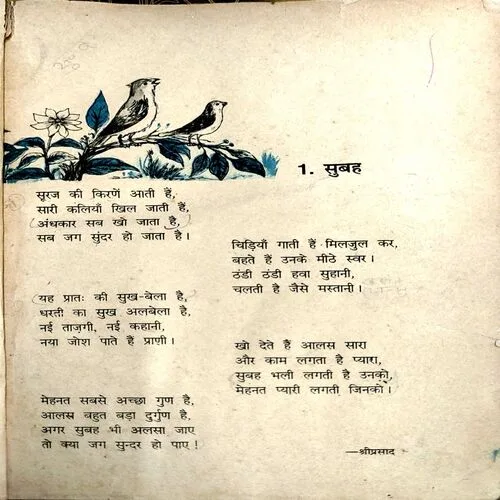 1. सुबह
सूरज की किरणें आती हैं,
सारी कलियाँ खिल जाती हैं,
अंधकार सब खो जाता है,
सब जग सुंदर हो जाता है।
चिड़ियाँ गाती हैं मिलजुल कर,
बहते हैं उनके मीठे स्वर।
ठंडी ठंडी हवा सुहानी,
चलती है जैसे मस्तानी।
यह प्रातः की सुख-बेला है,
धरती का सुख अलबेला है,
नई ताज़गी, नई कहानी,
नया जोश पाते हैं प्राणी।
खो देते हैं आलस सारा
और काम लगता है प्यारा,
सुबह भली लगती है उनको,
मेहनत प्यारी लगती जिनको।
मेहनत सबसे अच्छा गुण है,
आलस बहुत बड़ा दुर्गुण है,
अगर सुबह भी अलसा जाए
तो क्या जग सुन्दर हो पाए!
—श्रीप्रसाद